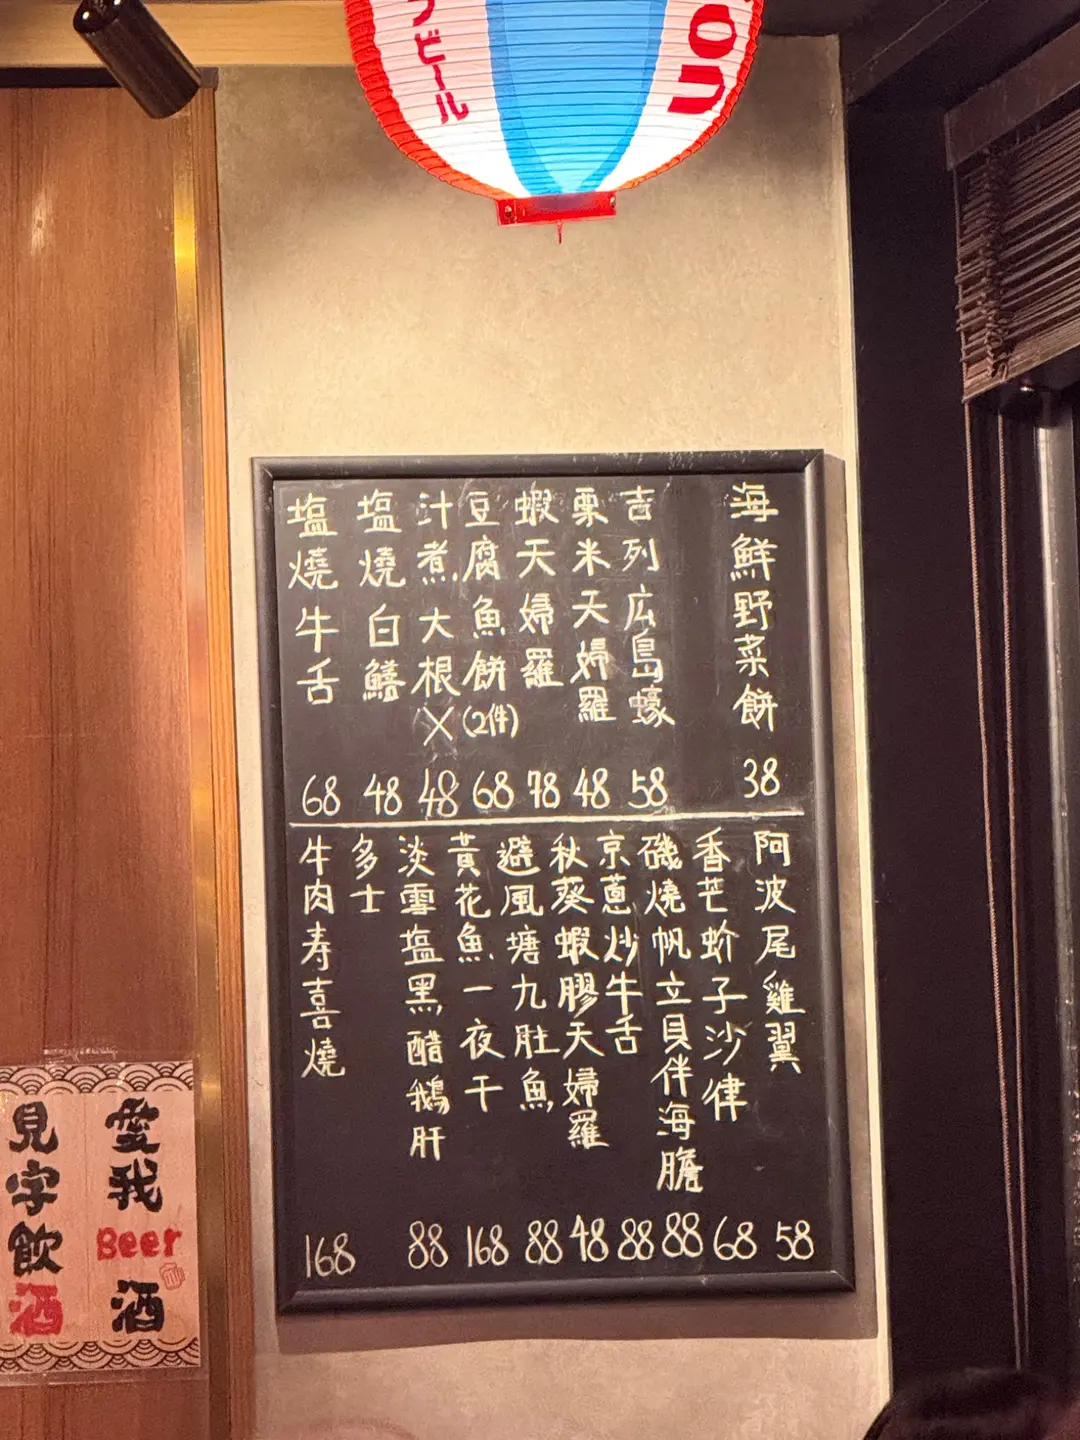 ビール
on
海鮮野菜餅 38
吉列広島蠔 58
栗米天婦羅 48
蝦天婦羅 78
豆腐魚餅(2件) 68
汁煮大根X 48
塩燒白鱔 48
塩燒牛舌 68
阿波尾雞翼 58
香芒蚧子沙律 68
磯燒帆立貝伴海膽 88
京蔥炒牛舌 88
秋葵蝦膠天婦羅 48
避風塘九肚魚 88
黃花魚一夜干 168
淡雪塩黑醋鵝肝
多士 88
牛肉寿喜燒 168
愛我Beer酒
見字飲酒